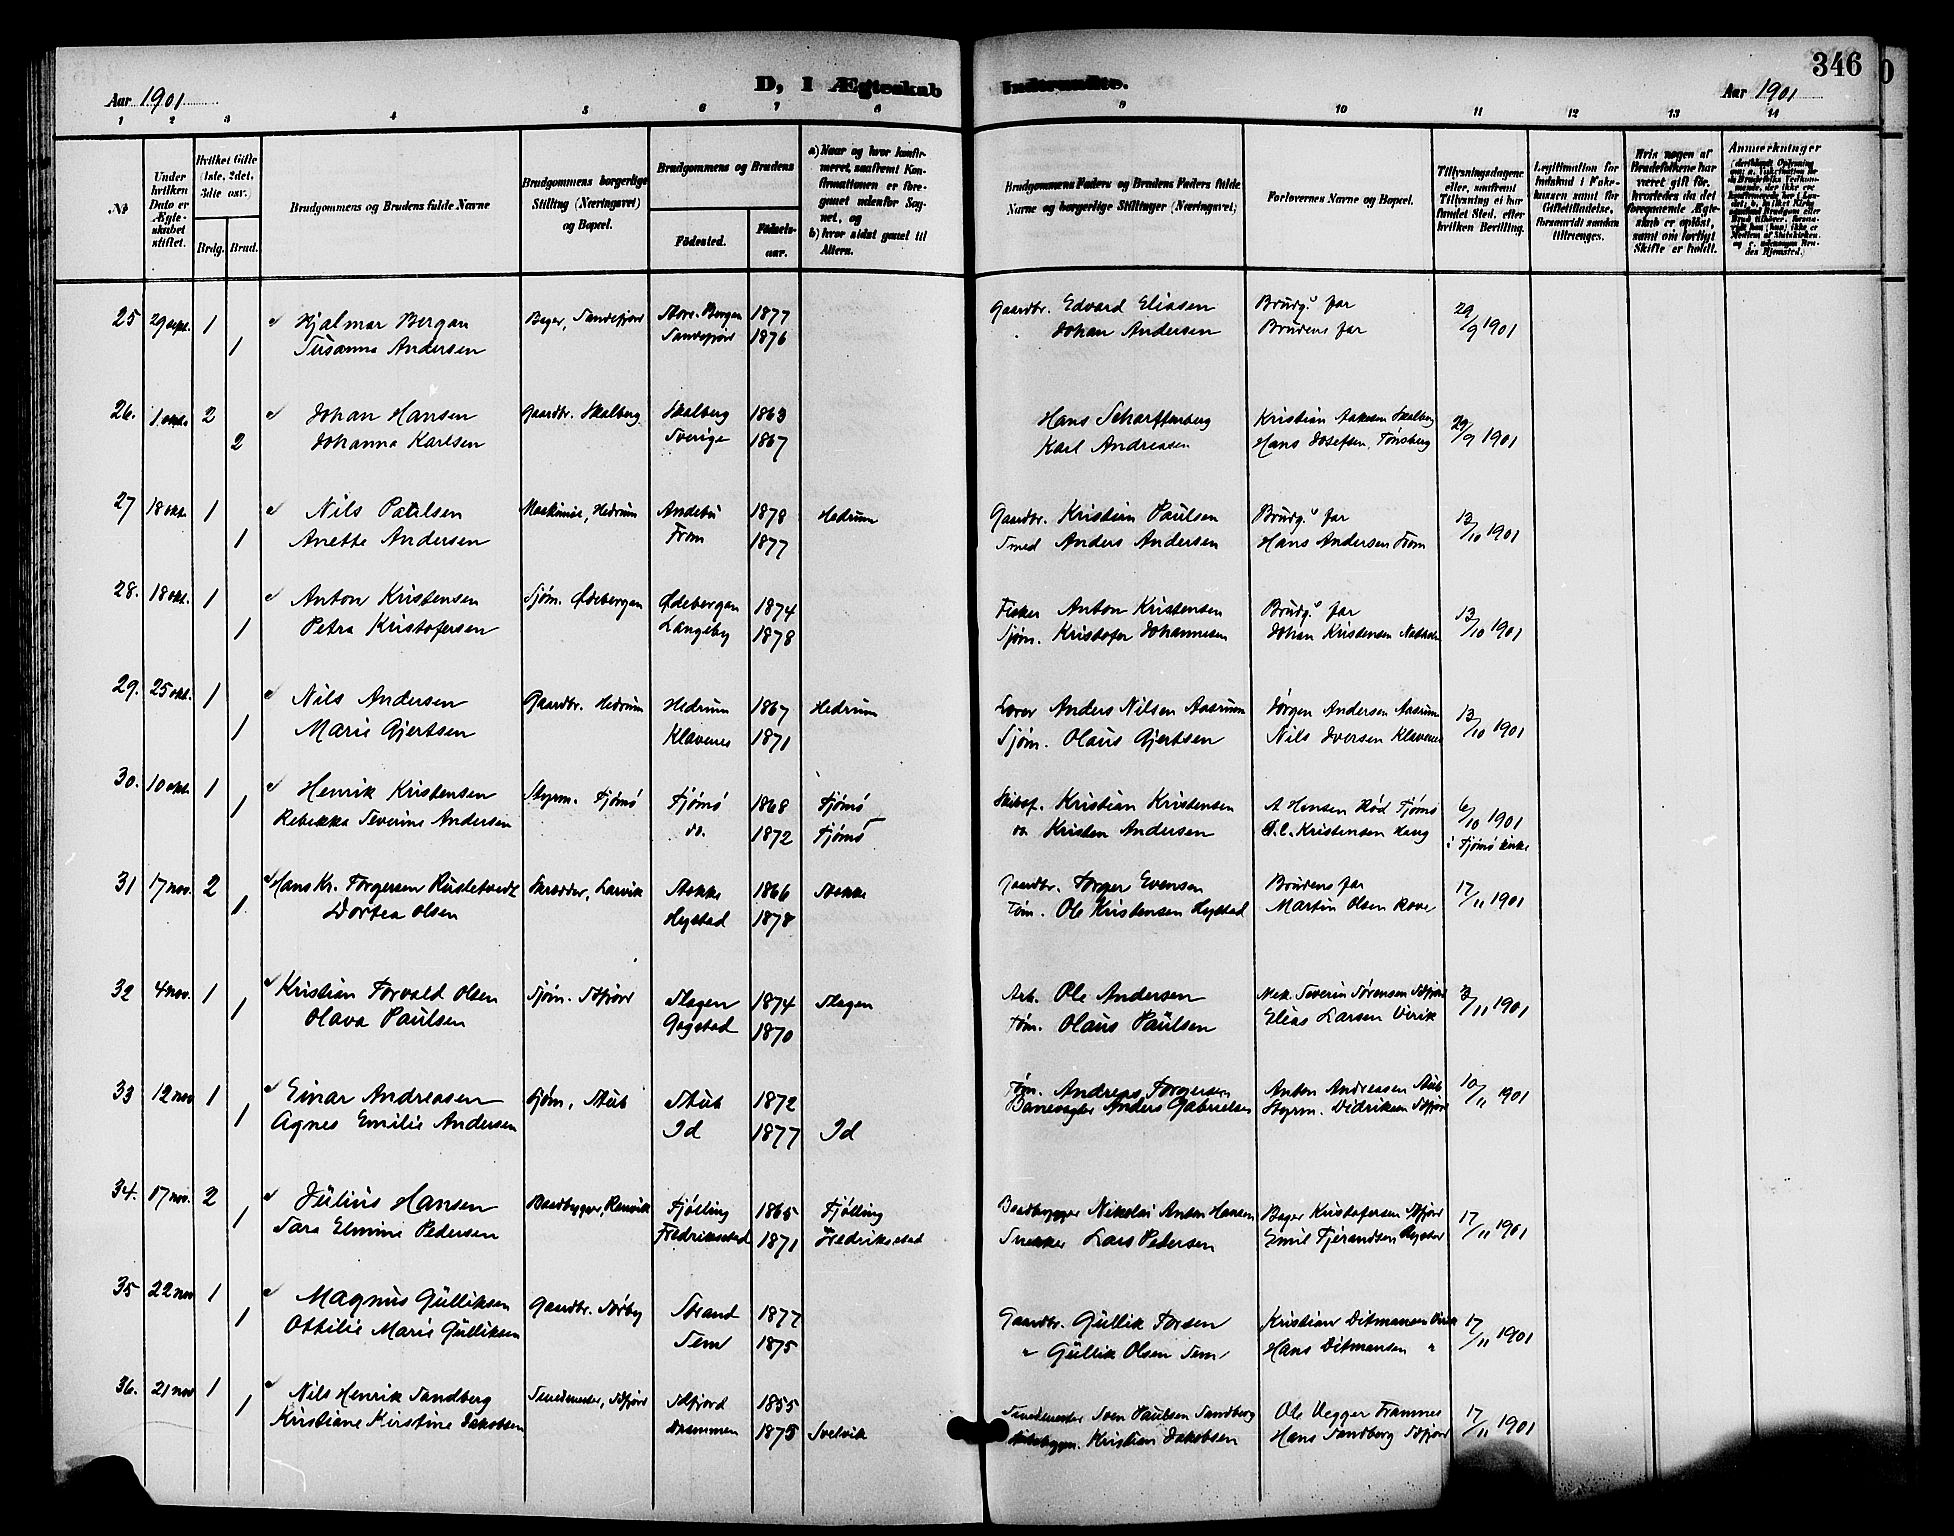 346
D, I Ægteskab Indtraadte.
Aar 1901
Aar 1901
1 2 3 4 5 6 7 8 9 10 11 12 13 14
No
Under hvilken Dato er Ægteskabet stiftet.
Hvilket Gifte (1ste, 2det, 3die osv.)
Brdg. Brud.
Brudgommens og Brudens fulde Navne
Brudgommens borgerlige Stilling (Næringsvei) og Bopæl.
Brudgommens og Brudens
Fødested.
Fødselsaar.
a) Naar og hvor konfirmeret, saafremt Konfirmationen er foregaaet udenfor Sognet, og
b) hvor sidst gaaet til Alters.
Brudgommens Faders og Brudens Faders fulde Navne og borgerlige Stillinger (Næringsvei)
Forlovernes Navne og Bopæl.
Tillysningsdagene eller, saafremt Tillysning ei har fundet Sted, efter hvilken Bevilling.
Legitimation for Indskud i Enkekassen samt for Giftetilladelse, forsaavidt saadan tiltrænges.
Hvis nogen af Brudefolkene har været gift før, hvorledes da det foregaaende Ægteskab er opløst, samt om lovligt Skifte er holdt.
Anmærkninger
25 29 sept. 1 Hjalmar Bergan Bager, Sandefjord Store Bergan 1877 Gaardbr. Edvard Eliasen Brudg.s far 29/9 1901
1 Susanna Andersen Sandefjord 1876 Johan Andersen Brudens far
26. 1 okt. 2 Johan Hansen Gaardbr. Skalberg Skalberg 1863 Hans Scharffenberg Kristian Aakesen Skalberg 29/9 1901
2 Johanna Karlsen Sverige 1867 Karl Andreasen Hans Josefsen, Tønsberg
27 18 okt. 1 Nils Paulsen Maskinist, Hedrum Andebu 1878 Hedrum Gaardbr. Kristian Paulsen Brudg.s far 13/10 1901
1 Anette Andersen Fron 1877 Smed Anders Andersen Hans Andersen Fron
28. 18 okt. 1 Anton Kristensen Sjøm. Ødebergan Ødebergan 1874 Fisker Anton Kristensen Brudg.s far 13/10 1901
1 Petra Kristofersen Langeby 1878 Sjøm. Kristofer Johannesen Johan Kristensen
29. 25 okt. 1 Nils Andersen Gaardbr. Hedrum Hedrum 1867 Hedrum Lærer Anders Nilsen Aasrum Jørgen Andersen Aasrum 13/10 1901
1 Marie Gjertsen Klavenes 1871 Sjøm. Olaus Gjertsen Nils Iversen Klavenes
30. 10 okt. 1 Henrik Kristensen Styrm. Tjømø Tjømø 1868 Tjømø Skibsf. Kristian Kristensen A Hansen Rød Tjømø 6/10 1901
1 Rebekka Severine Andersen do. 1872 Tjømø do Kristen Andersen Kristensen Haug i Tjømø kirke
31 17 nov. 2 Hans Kr. Torgersen Rustetvedt Skrædder, Larvik Stokke 1866 Stokke Gaardbr. Torger Evensen Brudens far 17/11 1901
1 Dortea Olsen Hystad 1878 Tøm. Ole Kristensen Hystad Martin Olsen Rove
32 4 nov. 1 Kristian Torvald Olsen Sjøm. Sdfjord Slagen 1874 Slagen Arb. Ole Andersen Mek. Severin Sørensen Sdfjord 3/11 1901
1 Olava Paulsen Gogstad 1870 Tøm. Olaus Paulsen Elias Larsen Virik
33 12 nov 1 Einar Andreasen Sjøm, Stub Stub 1872 Tøm. Andreas Torgersen Anton Andreasen Stub 10/11 1901
1 Agnes Emilie Andersen Id 1877 Id Banevogter Anders Gabrielsen Styrm. Didriksen Sdfjord
34. 17 nov. 2 Julius Hansen Baadbygger, Ranvik Tjølling 1865 Tjølling Baadbygger Nikolai Anton Hansen Bager Kristofersen Sdfjord 17/11 1901
1 Sara Elmine Pedersen Fredriksstad 1871 Fredriksstad Snekker Lars Pedersen Emil Tjerandsen
35 22 nov 1 Magnus Gulliksen Gaardbr. Sørby Strand 1877 Gaardbr. Gullik Torsen Kristian Ditmansen Virik 17/11 1901
1 Ottilie Marie Gulliksen Sem 1875 " Gullik Olsen Sem Hans Ditmansen "
36. 21 nov 1 Nils Henrik Sandberg Smedmester, Sdfjord Sdfjord 1855 Smedmester Sven Paulsen Sandberg Ole Vegger Framnes 17/11 1901
1 Kristiane Kirstine Jakobsen Drammen 1875 Svelvik Skibsbyggm. Kristian Jakobsen Hans Sandberg Sdfjord